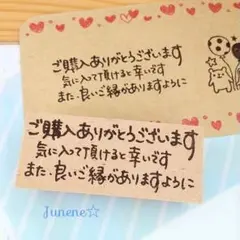 ご購入ありがとうございます
気に入って頂けると幸いです
また、良いご縁がありますように
ご購入ありがとうございます
気に入って頂けると幸いです
また、良いご縁がありますように
Junene☆